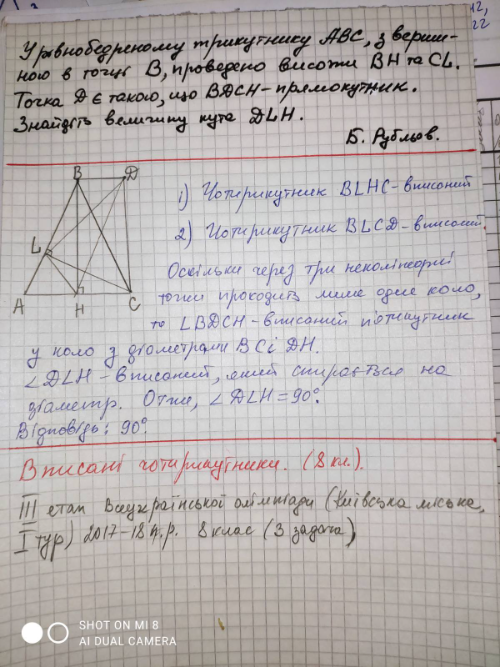 У рівнобедреному трикутнику ABC, з верши-
ною в точці B, проведено висоти BH та CL.
Точка D є такою, що BDCH - прямокутник.
Знайдіть величину кута DLH.
Б. Рубльов.
B D
1) Чотирикутник BLHC - вписаний
2) Чотирикутник BLCD - вписаний.
L
Оскільки через три неколінеарні
точки проходить лише одне коло,
A H C
то LBDCH - вписаний п'ятикутник
у коло з діаметрами BC і DH.
∠DLH - вписаний, який спирається на
діаметр. Отже, ∠DLH = 90°.
Відповідь: 90°.
Вписані чотирикутники. (8 кл.).
III етап Всеукраїнської олімпіади (Київська міська,
I тур) 2017-18 н.р. 8 клас (3 задача)
SHOT ON MI 8
AI DUAL CAMERA